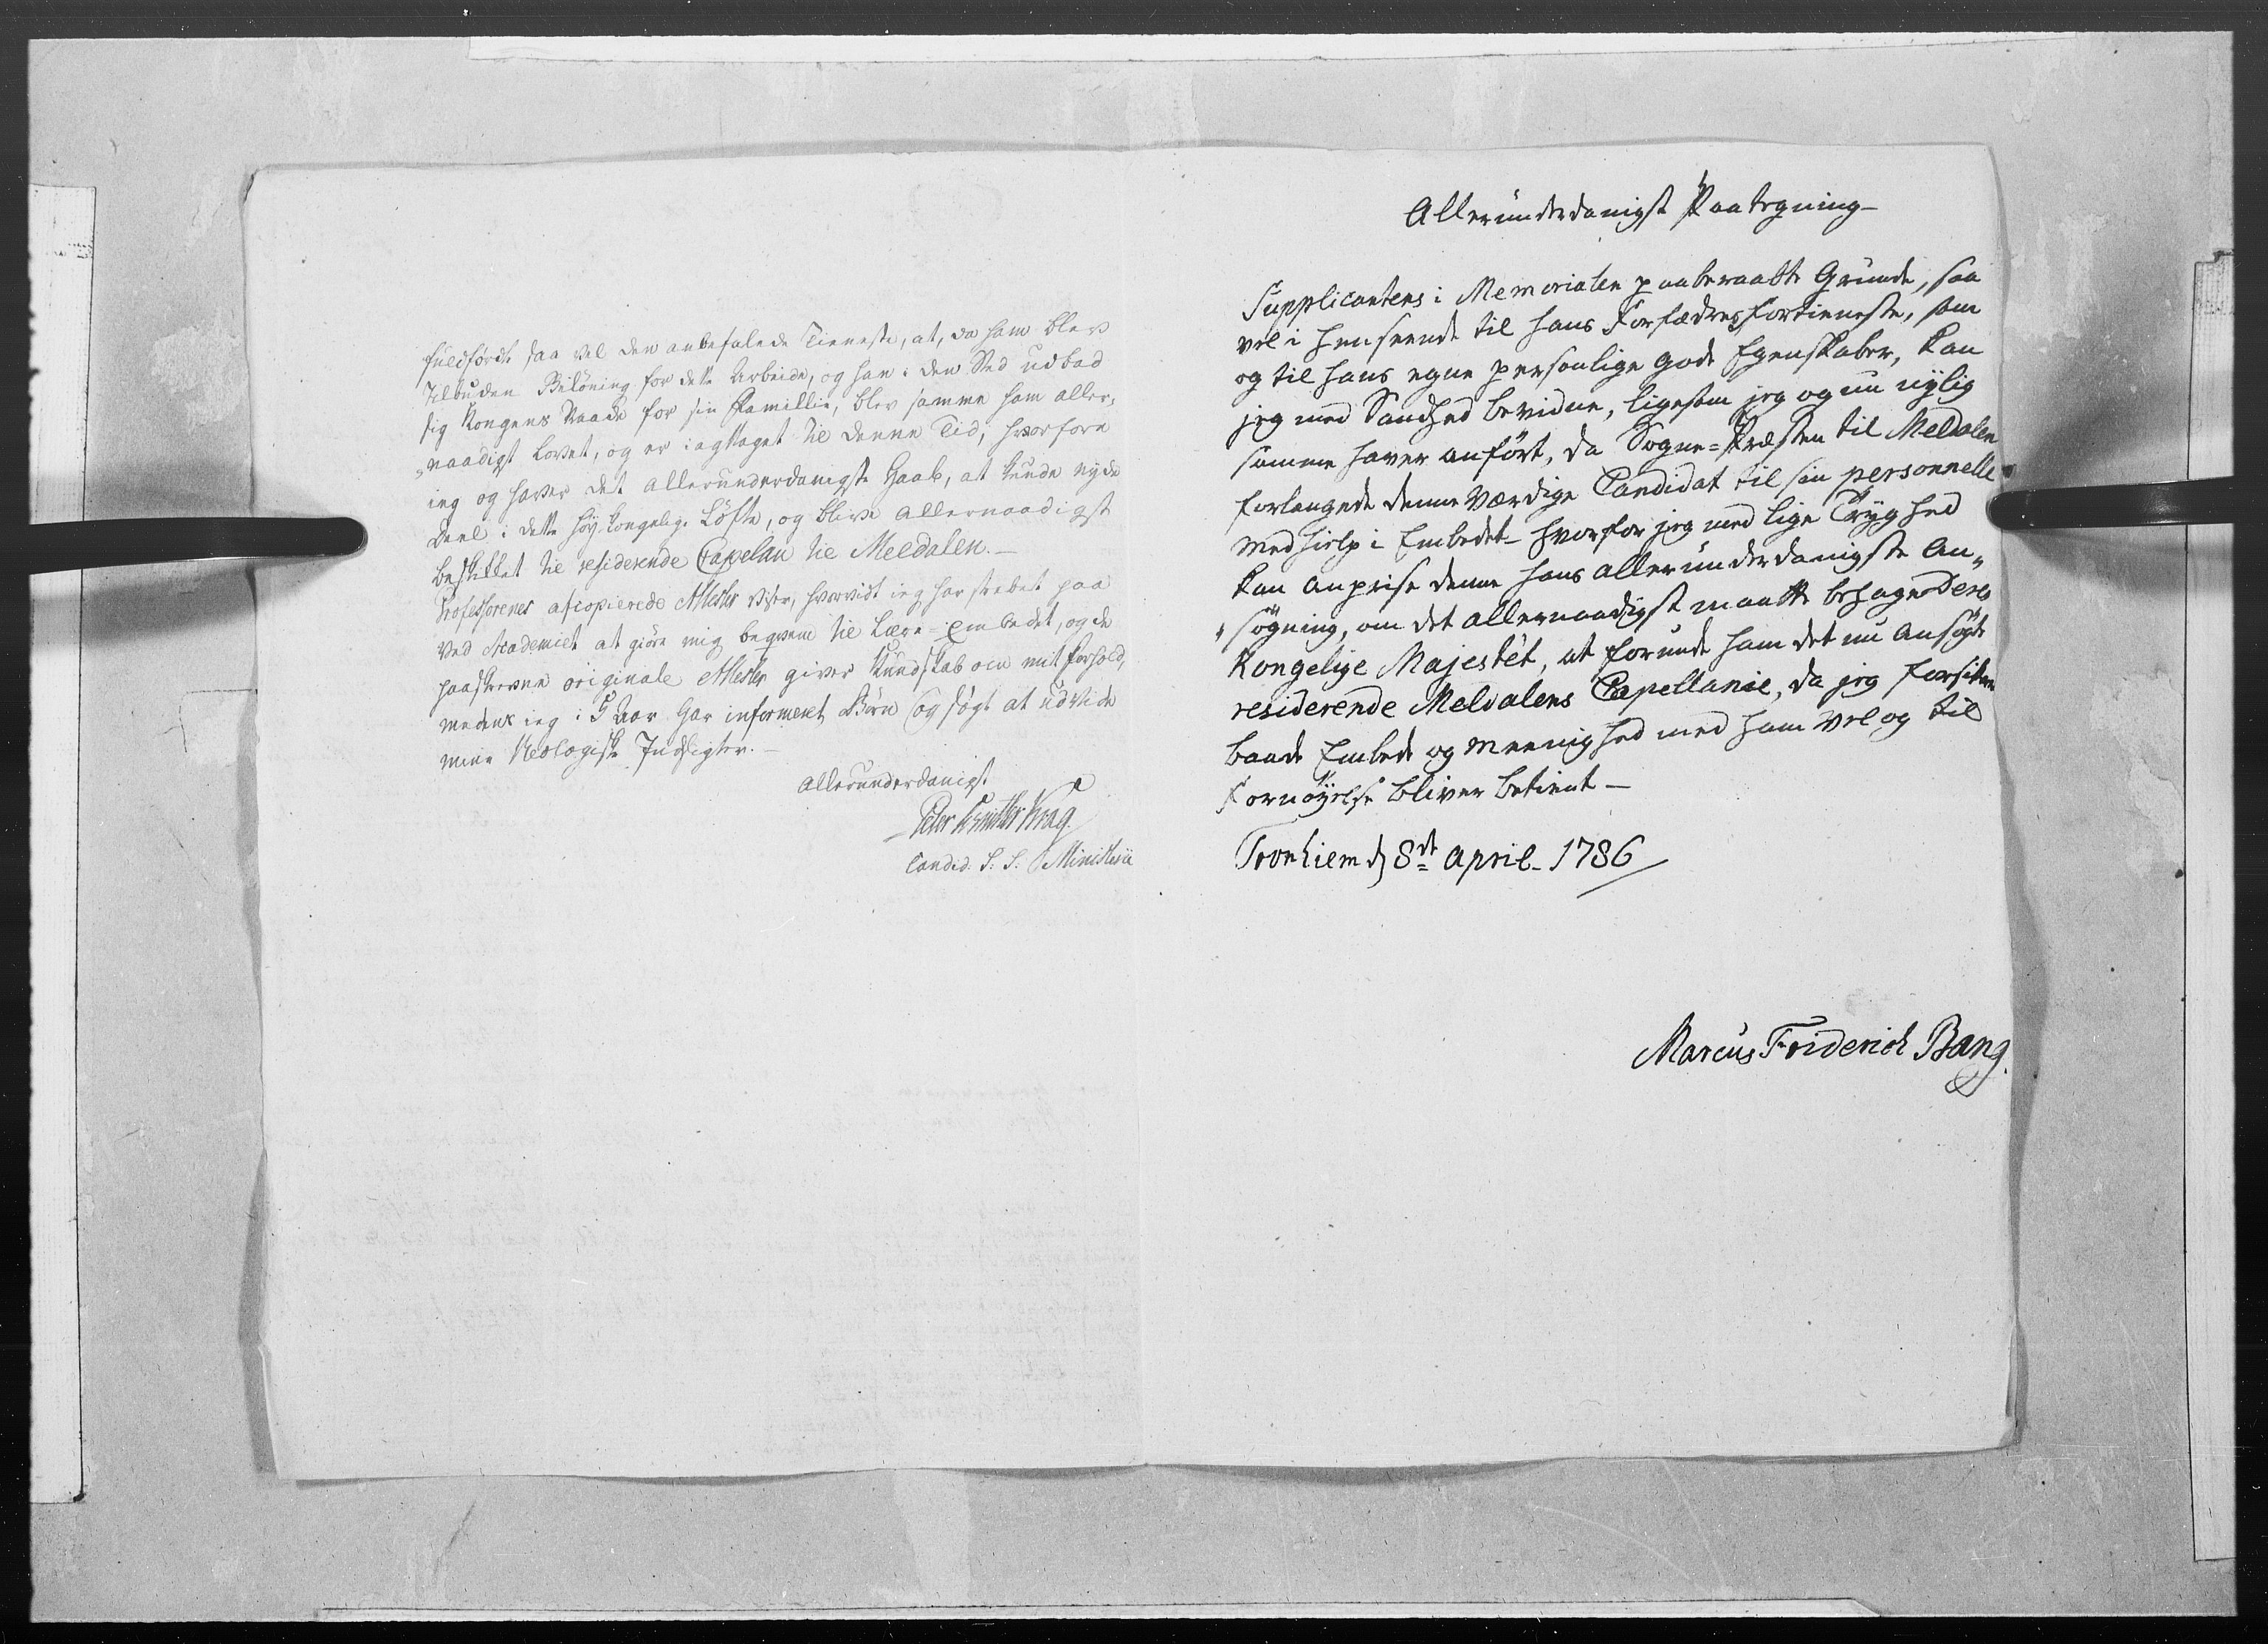 fuldførdte saa vel den anbefalede Tieneste, at, da ham blev
tilbuden Belöning for dette Arbeide, og han i den Sted udbad
sig Kongens Naade for sin Famillie, blev samme ham aller„
„naadigst lovet, og er iagttaget til denne Tid; hvorfore
ieg og haver det allerunderdanigste Haab, at kunde nyde
Deel i dette höy kongelige Löfte, og blive allernaadigst
beskikket til residerende Capelan til Meldalen. —
Professorenes afcopierede Attester viser, hvorvidt ieg har stræbet paa
ved Academiet at giöre mig beqvem til Lære-Embedet, og de
paaskrevne originale Attester giver Kundskab om mit Forhold,
medens ieg i 5 Aar har informeret Börn og sögt at udvide
mine theologiske Indsigter. —
Allerunderdanigst
Peter Krag
Candid. S: S: Ministerii
Alleründerdanigst Paategning —
Supplicantens i Memorialen paaberaabte Grunde, saa
vel i henseende til hans Forfædres fortieneste, som
og til hans egne personlige gode Egenskaber, kan
jeg med Sandhed bevidne, ligesom jeg og nu nylig
samme haver anført, da Sogne=Præsten til Meldalen
forlangede denne værdige Candidat til sin personnelle
Medhielp i Embedet — hvorfor jeg med lige Tryghed
kan anprise denne hans alleründerdanigste An„
„søgning, om det allernaadigst maatte behage Deres
Kongelige Majestét, at forunde ham det nu ansøgte
residerende Meldalens Capellanie, da jeg forsikrer
baade Embede og Meenighed med ham vel og til
Fornøyelse bliver betient —
Tronhiem d 8de April 1786
Marcus Friderich Bang.